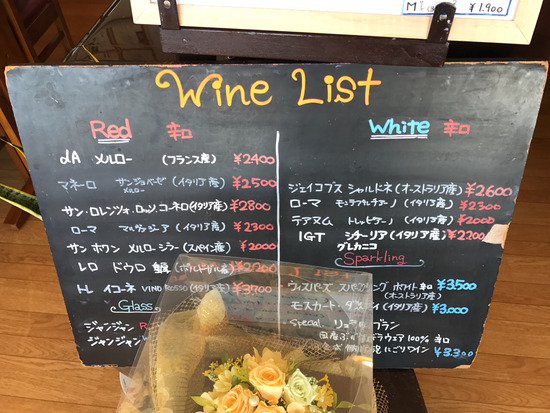 M ¥1,900
Wine List
Red 辛口
dA メルロー (フランス産) ¥2400
マネーロ サンジョベーゼ メルロー (イタリア産) ¥2500
サン・ロレンツォ・ロッソ・コーネロ(イタリア産) ¥2800
ローマ (イタリア産) ¥2300
サン ホワン メルロー シラー (スペイン産) ¥2000
レロ ドウロ (ポルトガル産) ¥2200
トレ イコーネ VINO ROSSO (イタリア産) ¥3700
Glass
ジャンジャン
ジャンジャン
White 辛口
ジェイコブス シャルドネ (オーストラリア産) ¥2600
ローマ (イタリア産) ¥2300
テアヌム トレッビアーノ (イタリア産) ¥2000
IGT シチーリア (イタリア産) ¥2200
グレカニコ
Sparkling
ウィスパーズ スパークリング ホワイト 辛口 ¥3,500
(オーストラリア産)
モスカート・ダ ¥3,000
Special ブラン
デラウェア 100% 辛口
にごりワイン ¥3,300